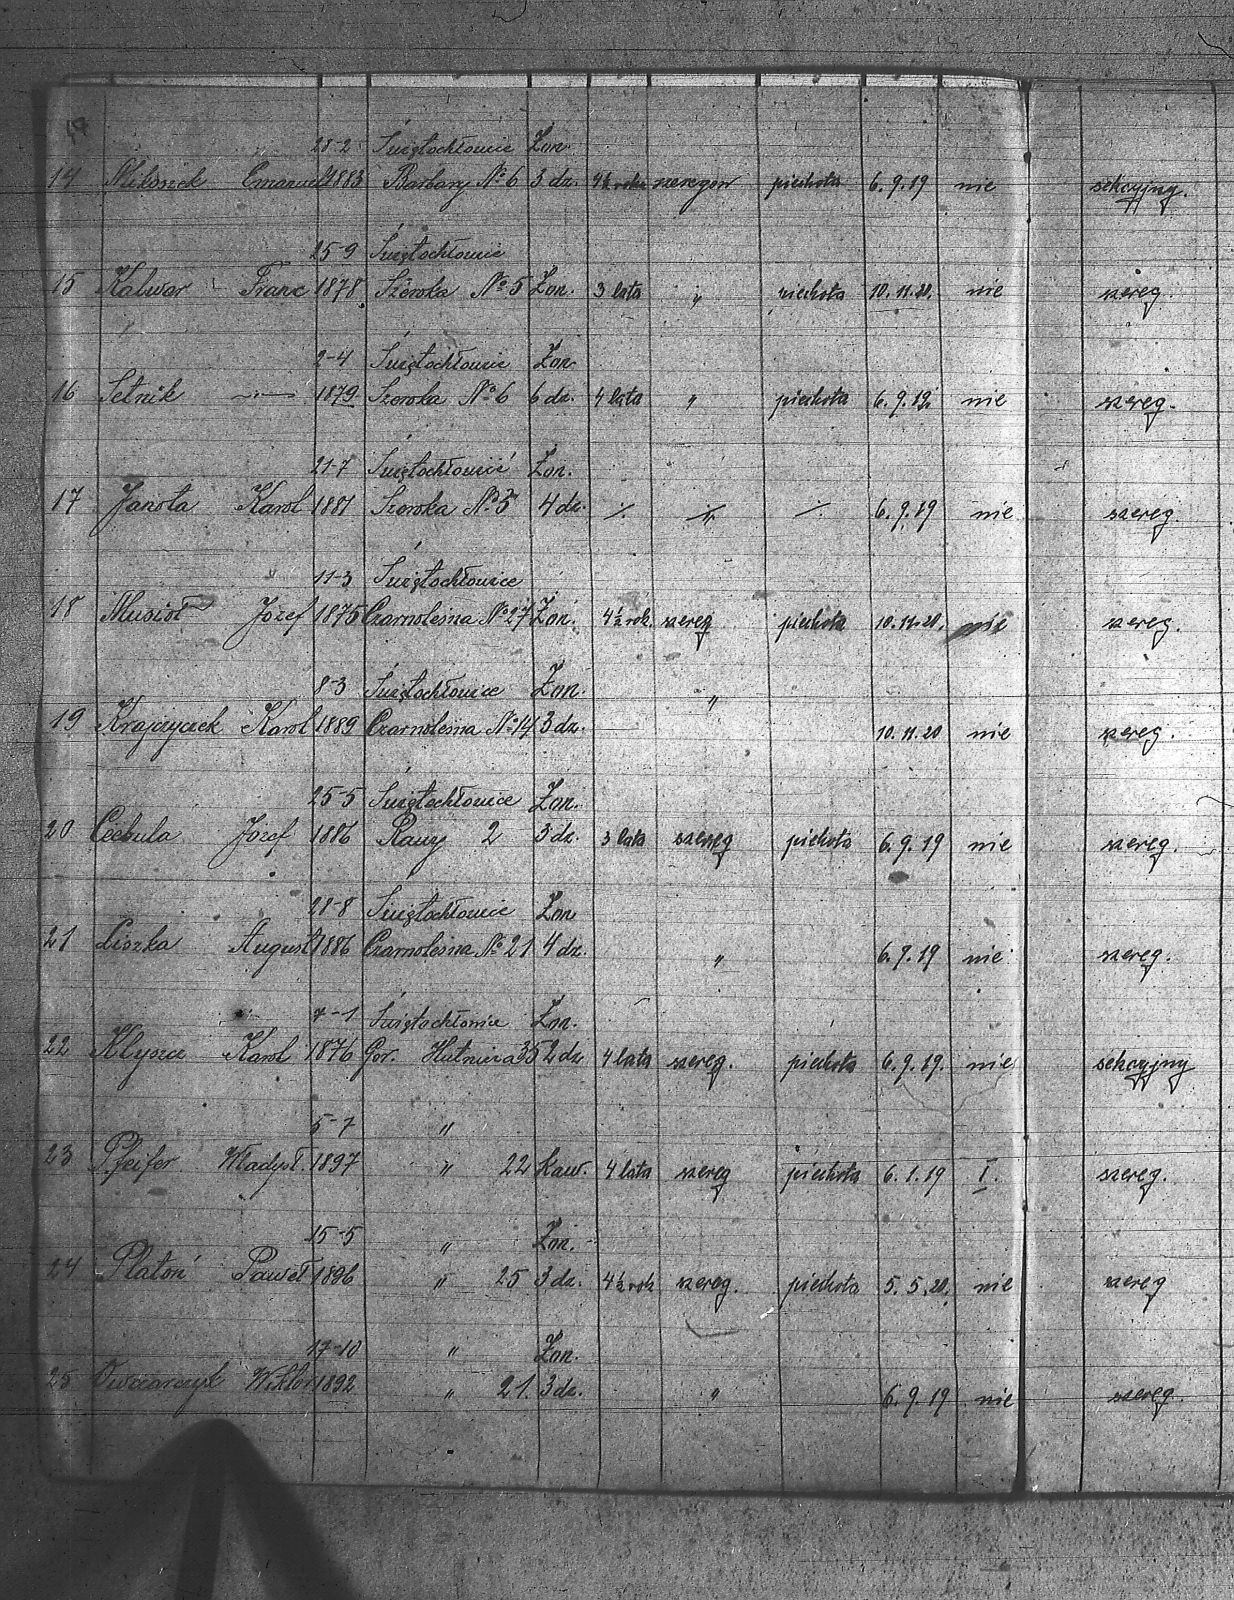 28-2 Świętochłowice Żon.
14 Emanuel 1883 Barbary No 6 3 dz. 4½ roku szeregow piechota 6.9.19 nie sekcyjny.
25-9 Świętochłowice
15 Kalwar Franc 1878 Szeroka No 5 Żon. 3 lata " piechota 10.11.20. nie szereg.
2-4 Świętochłowice Żon.
16 Setnik —"— 1879 Szeroka No 6 6 dz. 4 lata " piechota 6.9.19. nie szereg.
21-7 Świętochłowice Żon.
17 Janota Karol 1881 Szeroka No 5 4 dz. ./. ./. ./. 6.9.19 nie szereg.
11-3 Świętochłowice
18 Musioł Józef 1875 Czarnoleśna No 27 Żon. 4½ rok. szereg piechota 10.11.20. nie szereg.
8-3 Świętochłowice Żon. "
19 Krajczyczek Karol 1889 Czarnoleśna No 14 3 dz. 10.11.20 nie szereg.
25-5 Świętochłowice Żon.
20 Cebula Józef 1886 2 3 dz. 3 lata szereg piechota 6.9.19 nie szereg.
28-8 Świętochłowice Żon
21 Liszka August 1886 Czarnoleśna No 21 4 dz. " 6.9.19 nie szereg.
7-1 Świętochłowice Żon.
22 Klyszcz Karol 1876 Gór. Hutnicza 35 2 dz 4 lata szereg. piechota 6.9.19. nie sekcyjny
5-7 "
23 Pfeifer Władysł. 1897 " 22 Kaw. 4 lata szereg piechota 6.1.19 I. szereg.
15-5 " Żon.
24 Platoń Paweł 1896 " 25 3 dz. 4½ rok szereg. piechota 5.5.20. nie szereg
17-10 " Żon.
25 Owczarczyk Wiktor 1892 " 21. 3 dz. " 6.9.19 nie szereg.